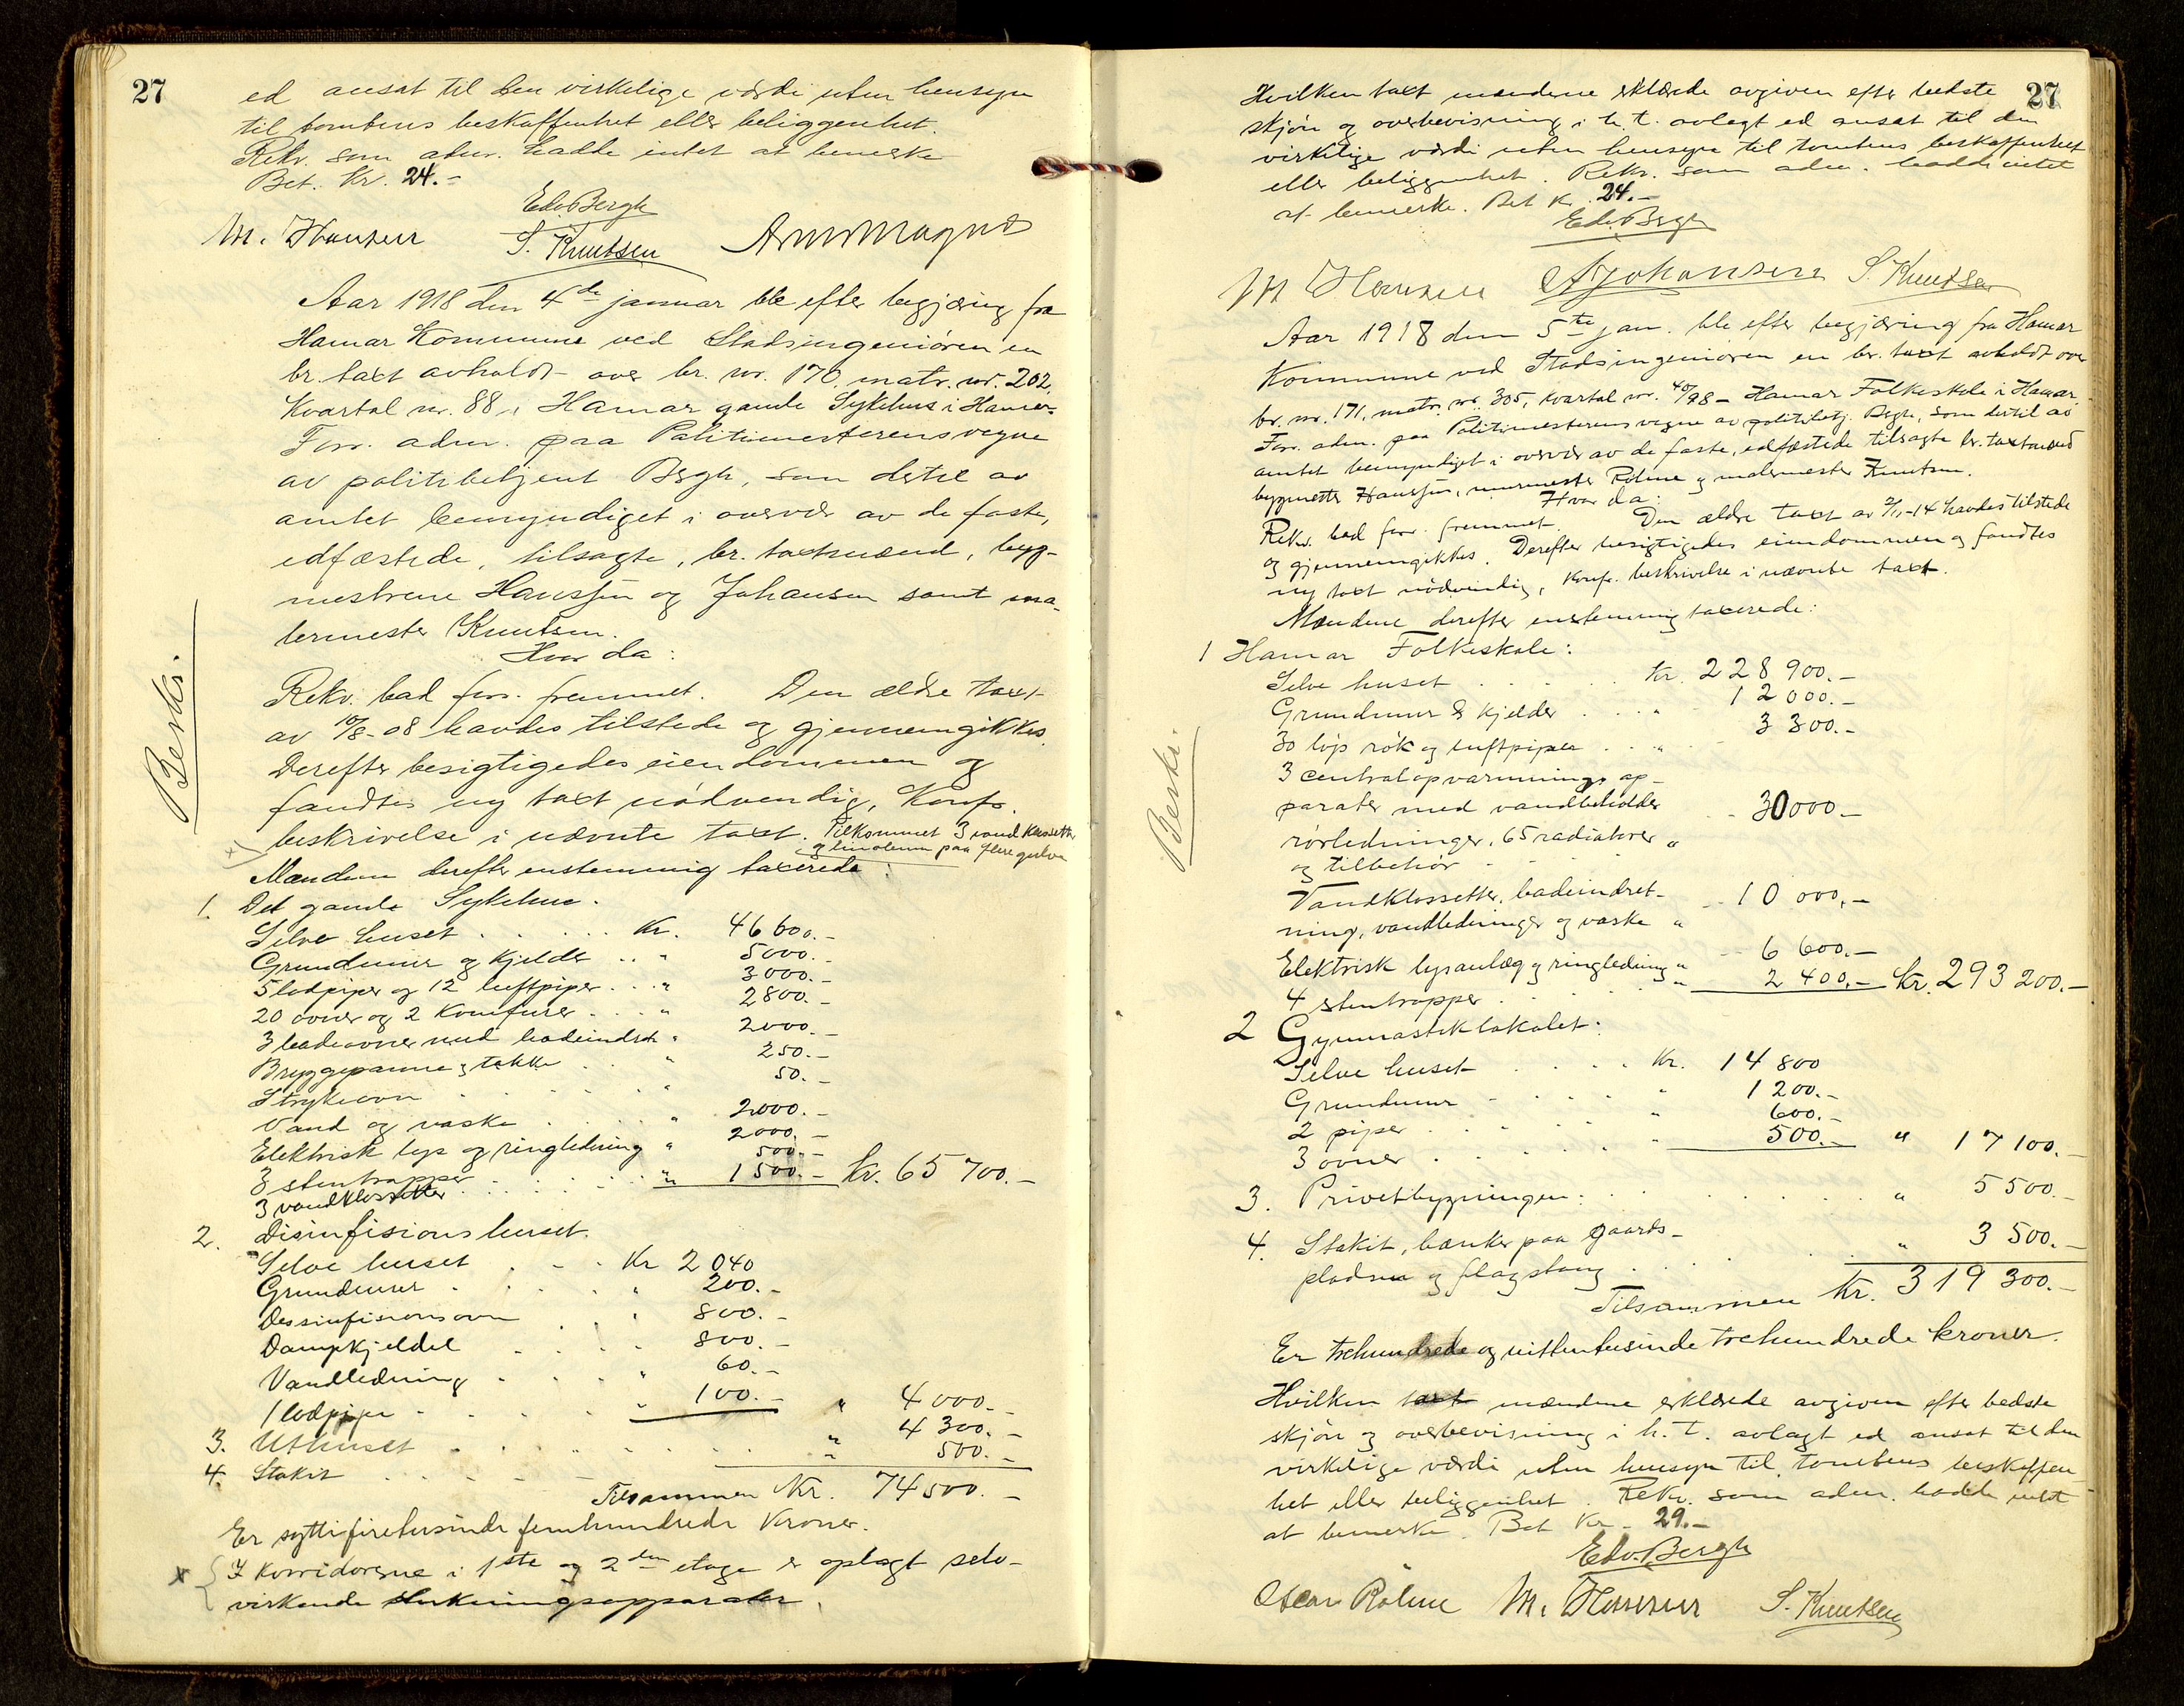 27
ed ansat til den virkelige værdi uten hensyn
til tomtens beskaffenhet eller beliggenhet.
Rekv. som adm. hadde intet at bemerke
Bet. Kr. 24.-
Edv. Bergh
M. Hansen S. Knutsen
Aar 1918 den 4de januar ble efter begjæring fra
Hamar Kommune ved Stadsingeniören en
br. taxt avholdt over br. nr. 170. matr. nr. 202,
Kvartal nr. 88, Hamar gamle Sykehus i Hamar.
Forr. adm. paa Politimesterens vegne
av politibetjent Bergh, som dertil av
amtet bemyndiget i overvær av de faste,
edfæstede, tilsagte, br. taxtmænd, byg-
mestrene Hanssen og Johansen samt ma-
lermester Knutsen.
Hvor da:
Beskr.
Rekv. bad forr. fremmet. Den ældre taxt
av 10/8-08 havdes tilstede og gjennemgikkes.
Derefter besigtigedes eiendommen og
fandtes ny taxt nödvendig, Konfr.
beskrivelse i nævnte taxt. Tilkommet 3 vandklosetter
og linoleum paa flere gulve
Mændene derefter enstemmig taxerede:
1. Det gamle Sykehus.
Selve huset . . . . . Kr. 46 600.-
Grundmur og Kjelder . . " 5000.-
5 lödpiper og 12 luftpiper . . . " 3000.-
20 ovner og 2 Komfurer . . . " 2800.-
3 badeovner med badeindretn " 2000.-
Bryggepanne g takke . . " 250.-
Strykeovn . . . . . " 50.-
Vand og vaske . . . . " 2000.-
Elektrisk lys og ringledning " 2000.-
3 stentrapper . . . . . . 500.-
3 vandklosetter . . . . . " 1500.- Kr. 65 700.-
2. Disinfisionshuset.
Selve huset . . . Kr 2 040
Grundmur . . . . " 200.-
Dessinfisionsovn . . " 800.-
Dampkjeldel . . . . 800.-
Vandledning . . . . " 60.-
1 lødpipe . . . . . " 100.- " 4 000.-
3. Uthuset . . . . . . . . " 4 300.-
4. Stakit . . . . . " 500.-
Tilsammen Kr. 74 500.-
Er syttifiretusinde femhundrede Kroner.
x I Korridorerne i 1ste og 2den etage er oplagt selv-
virkende slukningsapparater.
27
Hvilken taxt mændene erklærede avgiven efter bedste
skjön og overbevisning i h. t. avlagt ed ansat til den
virkelige værdi uten hensyn til tomtens beskaffenhet
eller beliggenhet. Rekv. som adm. hadde intet
at bemerke. Bet Kr. 24.-
Edv. Bergh
M Hansen A Johansen S. Knutsen
Aar 1918 den 5te jan. ble efter begjæring fra Hamar
Kommune ved Stadsingeniören en br. taxt avholdt over
br. nr. 171, matr. nr. 305, kvartal nr. 40/98 - Hamar Folkeskole i Hamar.
Forr. adm. paa Politimesterens vegne av politibetj. Bergh, som dertil av
amtet bemyndiget i overvær av de faste, edfæstede tilsagte br. taxtmænd
bygmester Hanssen, murmester Rölme og malermester Knutsen.
Hvor da:
Beskr.
Rekv. bad forr. fremmet. Den ældre taxt av 2/1-14 havdes tilstede
og gjennemgikkes. Derefter besigtigedes eiendommen og fandtes
ny taxt nödvendig, Konfr. beskrivelse i nævnte taxt.
Mændene derefter enstemmig taxerede:
1 Hamar Folkeskole:
Selve huset . . . . . Kr. 228 900.-
Grundmur & kjelder . . . " 12 000.-
30 löps rök og luftpiper . . " 3 300.-
3 centralopvarmnings ap-
parater med vandbeholder
rörledninger, 65 radiatorer " 30000.-
og tilbehör . . .
Vandklosetter, badeindret-
ning, vandledninger og vaske " 10 000.-
Elektrisk lysanlæg og ringledning " 6 600.-
4 stentrapper . . . . " 2 400.- Kr. 293 200.-
2 Gymnastiklokalet:
Selve huset . . . . Kr. 14 800
Grundmur . . . . " 1 200.-
2 piper . . . . . " 600.-
3 ovner . . . . . " 500.- " 17 100.-
3. Privetbygningen: . . . . . . " 5 500.-
4. Stakit, bænker paa gaards-
pladsen og flagstang . . . . " 3 500.-
Tilsammen Kr. 319 300.-
Er trehundrede og nittentusinde trehundrede kroner.
Hvilken taxt mændene erklærede avgiven efter bedste
skjön og overbevisning i h. t. avlagt ed ansat til den
virkelige værdi uten hensyn til tomtens beskaffen
het eller beliggenhet. Rekv. som adm. hadde intet
at bemerke. Bet Kr. 29.-
Edv. Bergh
Oscar Rölme M. Hansen S. Knutsen